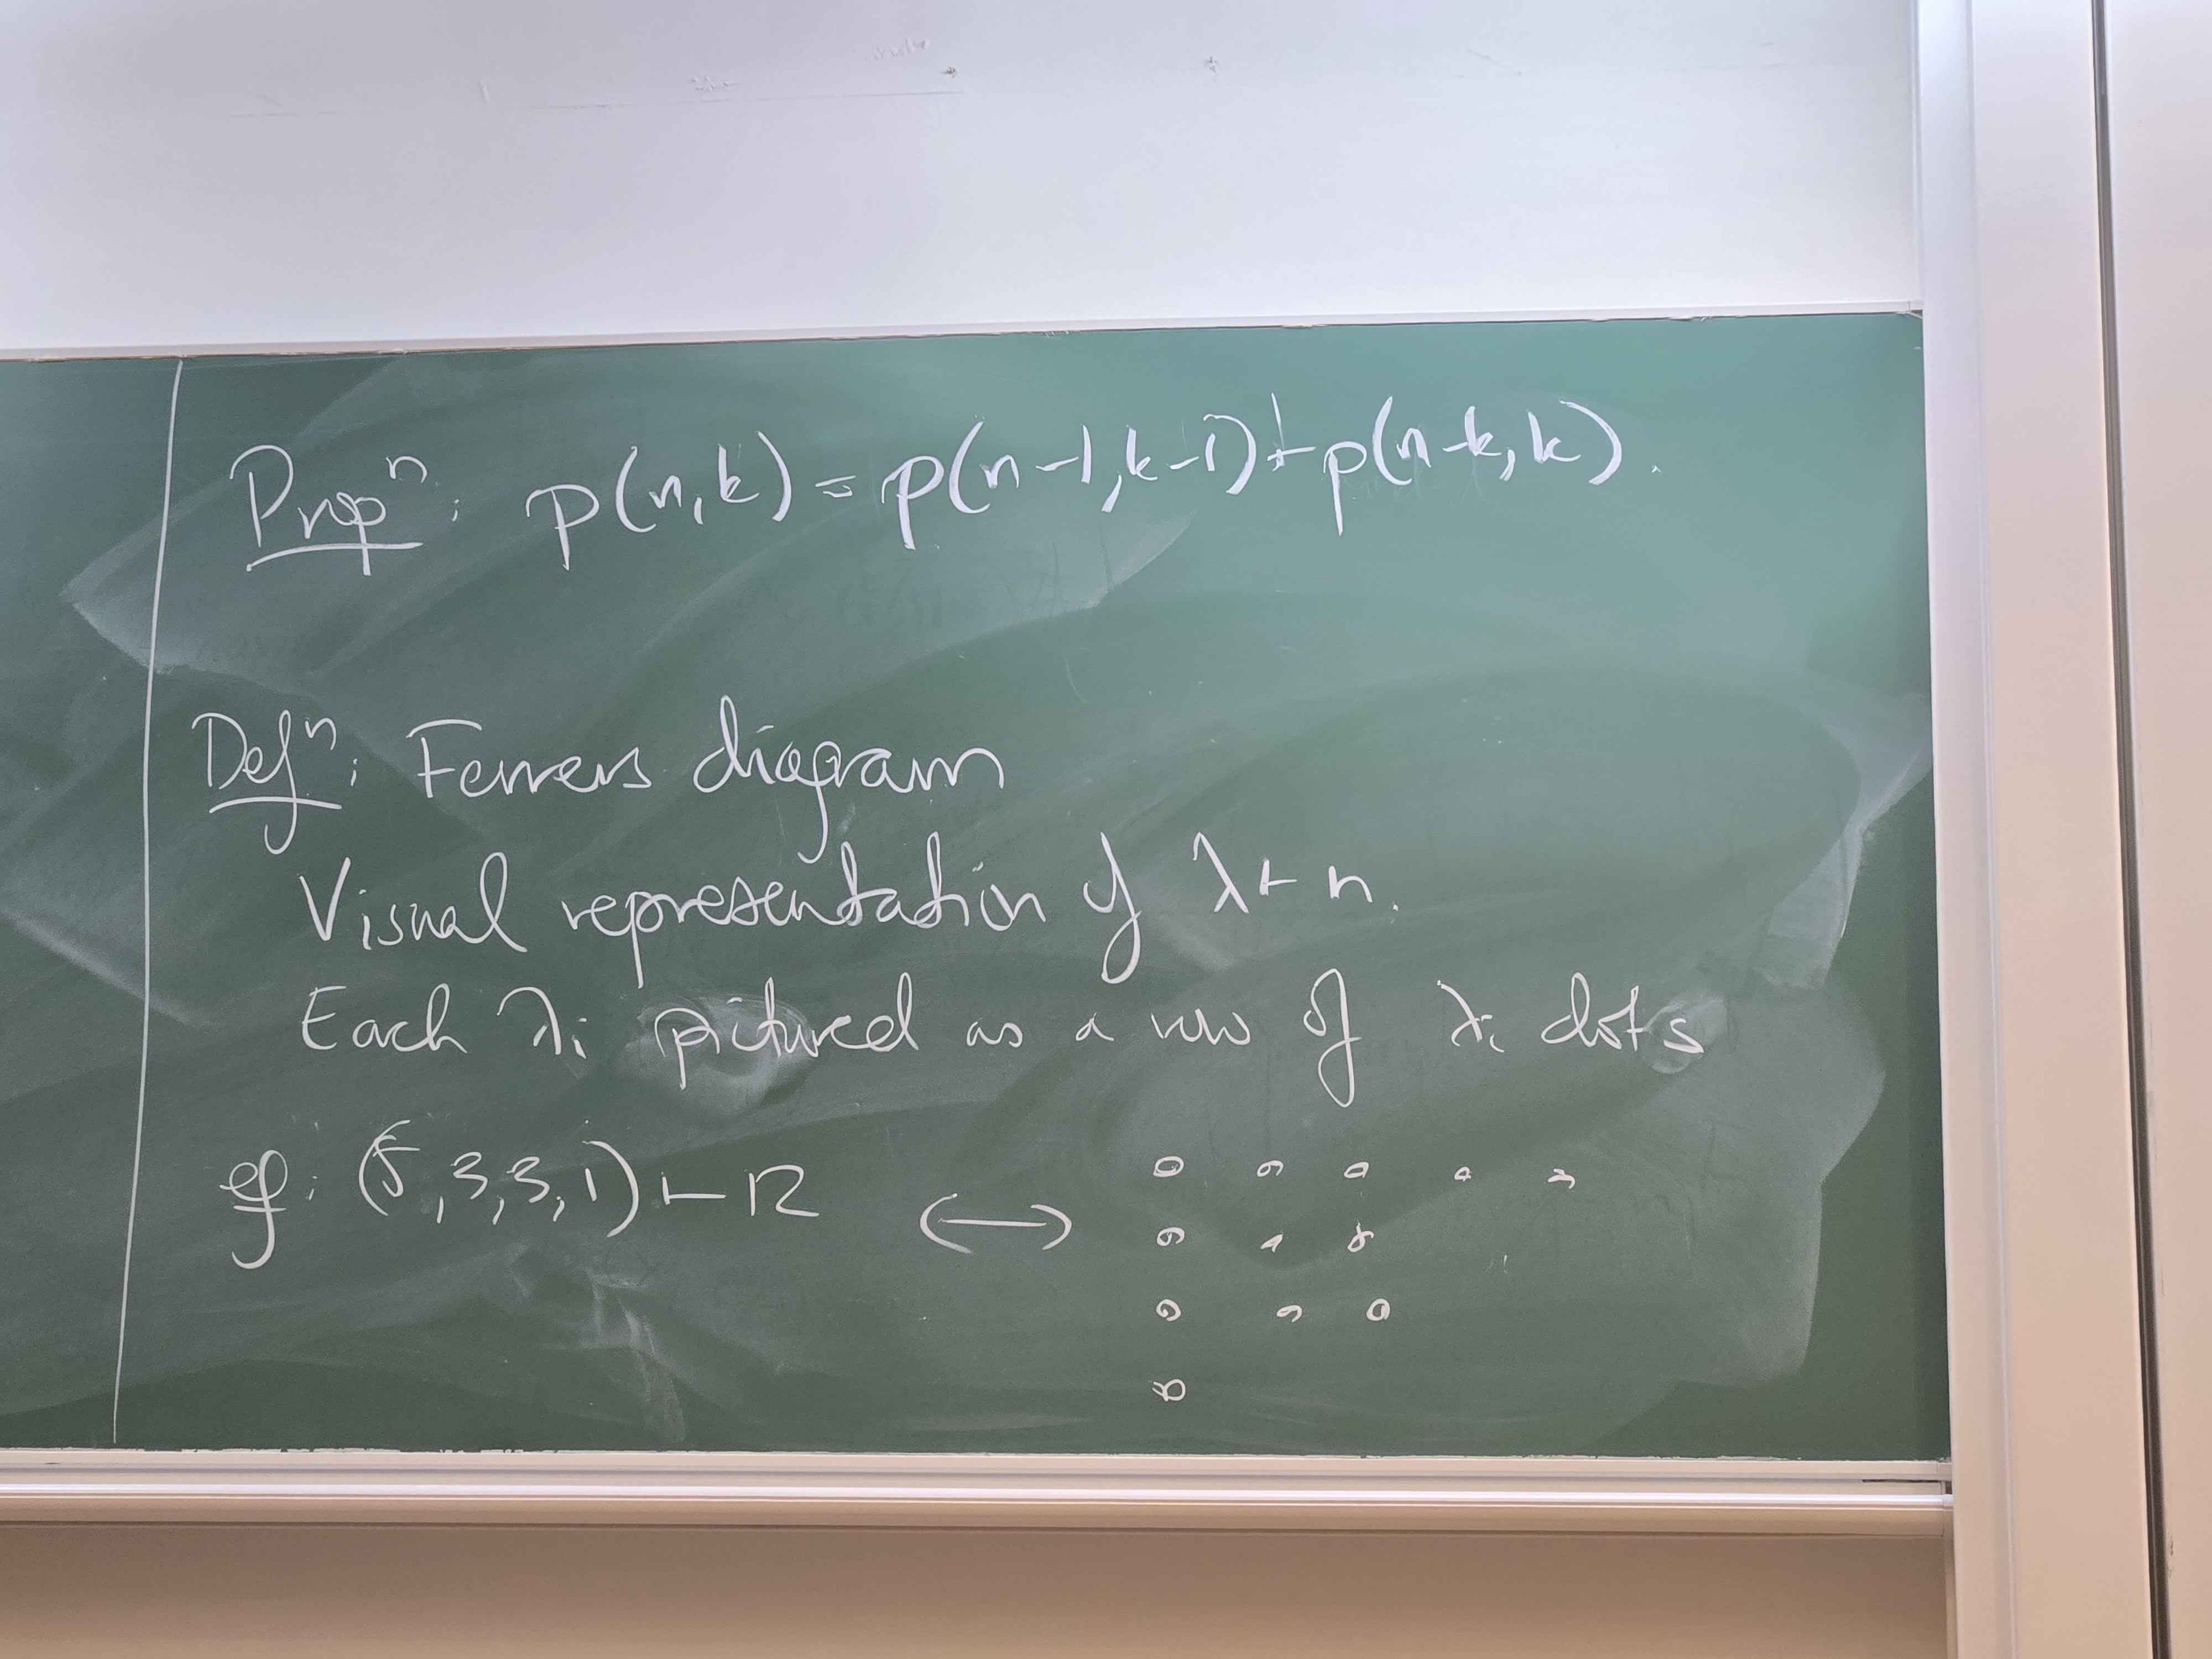 Propⁿ: p(n,k) = p(n-1,k-1) + p(n-k,k).
Defⁿ: Ferrers diagram
Visual representation of λ ⊢ n.
Each λᵢ pictured as a row of λᵢ dots
eg: (5,3,3,1) ⊢ 12 ⟷